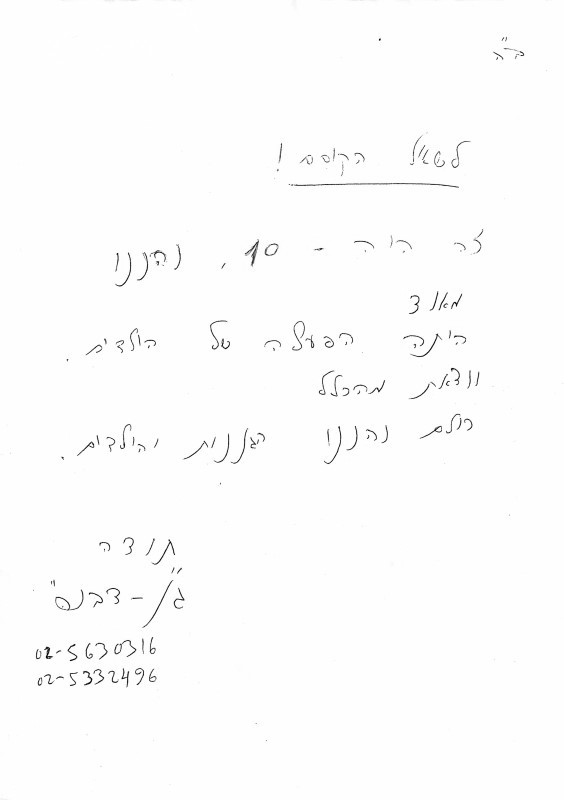 ב"ה
לשאול הקוסם!
זה היה - 10, נהננו
מאוד
היתה הפעלה של הילדים.
יוצאת מהכלל
כולם נהננו הגננות והילדים.
תודה
"גן -
02-5630316
02-5332496